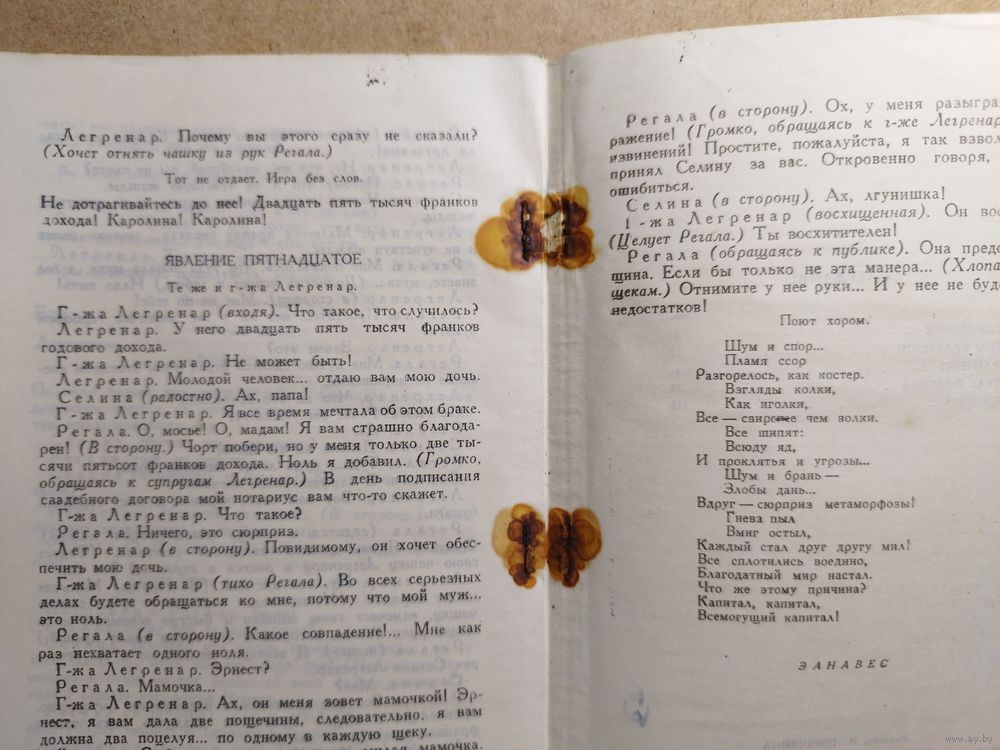 Легренар. Почему вы этого сразу не сказали?
(Хочет отнять чашку из рук Регала.)
Тот не отдает. Игра без слов.
Не дотрагивайтесь до нее! Двадцать пять тысяч франков
дохода! Каролина! Каролина!
ЯВЛЕНИЕ ПЯТНАДЦАТОЕ
Те же и г-жа Легренар.
Г-жа Легренар (входя). Что такое, что случилось?
Легренар. У него двадцать пять тысяч франков
годового дохода.
Г-жа Легренар. Не может быть!
Легренар. Молодой человек... отдаю вам мою дочь.
Селина (радостно). Ах, папа!
Г-жа Легренар. Я все время мечтала об этом браке.
Регала. О, мосье! О, мадам! Я вам страшно благода-
рен! (В сторону.) Чорт побери, но у меня только две ты-
сячи пятьсот франков дохода. Ноль я добавил. (Громко,
обращаясь к супругам Легренар.) В день подписания
свадебного договора мой нотариус вам что-то скажет.
Г-жа Легренар. Что такое?
Регала. Ничего, это сюрприз.
Легренар (в сторону). Повидимому, он хочет обес-
печить мою дочь.
Г-жа Легренар (тихо Регала). Во всех серьезных
делах будете обращаться ко мне, потому что мой муж...
это ноль.
Регала (в сторону). Какое совпадение!... Мне как
раз нехватает одного ноля.
Г-жа Легренар. Эрнест?
Регала. Мамочка...
Г-жа Легренар. Ах, он меня зовет мамочкой! Эр-
нест, я вам дала две пощечины, следовательно, я вам
должна два поцелуя... по одному в каждую щеку.
мамочка.
Регала (в сторону). Ох, у меня разыгра
ражение! (Громко, обращаясь к г-же Легренар
извинений! Простите, пожалуйста, я так взвол
принял Селину за вас. Откровенно говоря,
ошибиться.
Селина (в сторону). Ах, лгунишка!
Г-жа Легренар (восхищенная). Он вос
(Целует Регала.) Ты восхитителен!
Регала (обращаясь к публике). Она предс
щина. Если бы только не эта манера... (Хлопа
щекам.) Отнимите у нее руки... И у нее не буд
недостатков!
Поют хором.
Шум и спор...
Пламя ссор
Разгорелось, как костер.
Взгляды колки,
Как иголки,
Все — свирепее чем волки.
Все шипят:
Всюду яд,
И проклятья и угрозы...
Шум и брань —
Злобы дань...
Вдруг — сюрприз метаморфозы!
Гнева пыл
Вмиг остыл,
Каждый стал друг другу мил!
Все сплотились воедино,
Благодатный мир настал.
Что же этому причина?
Капитал, капитал,
Всемогущий капитал!
ЗАНАВЕС
www.ay.by